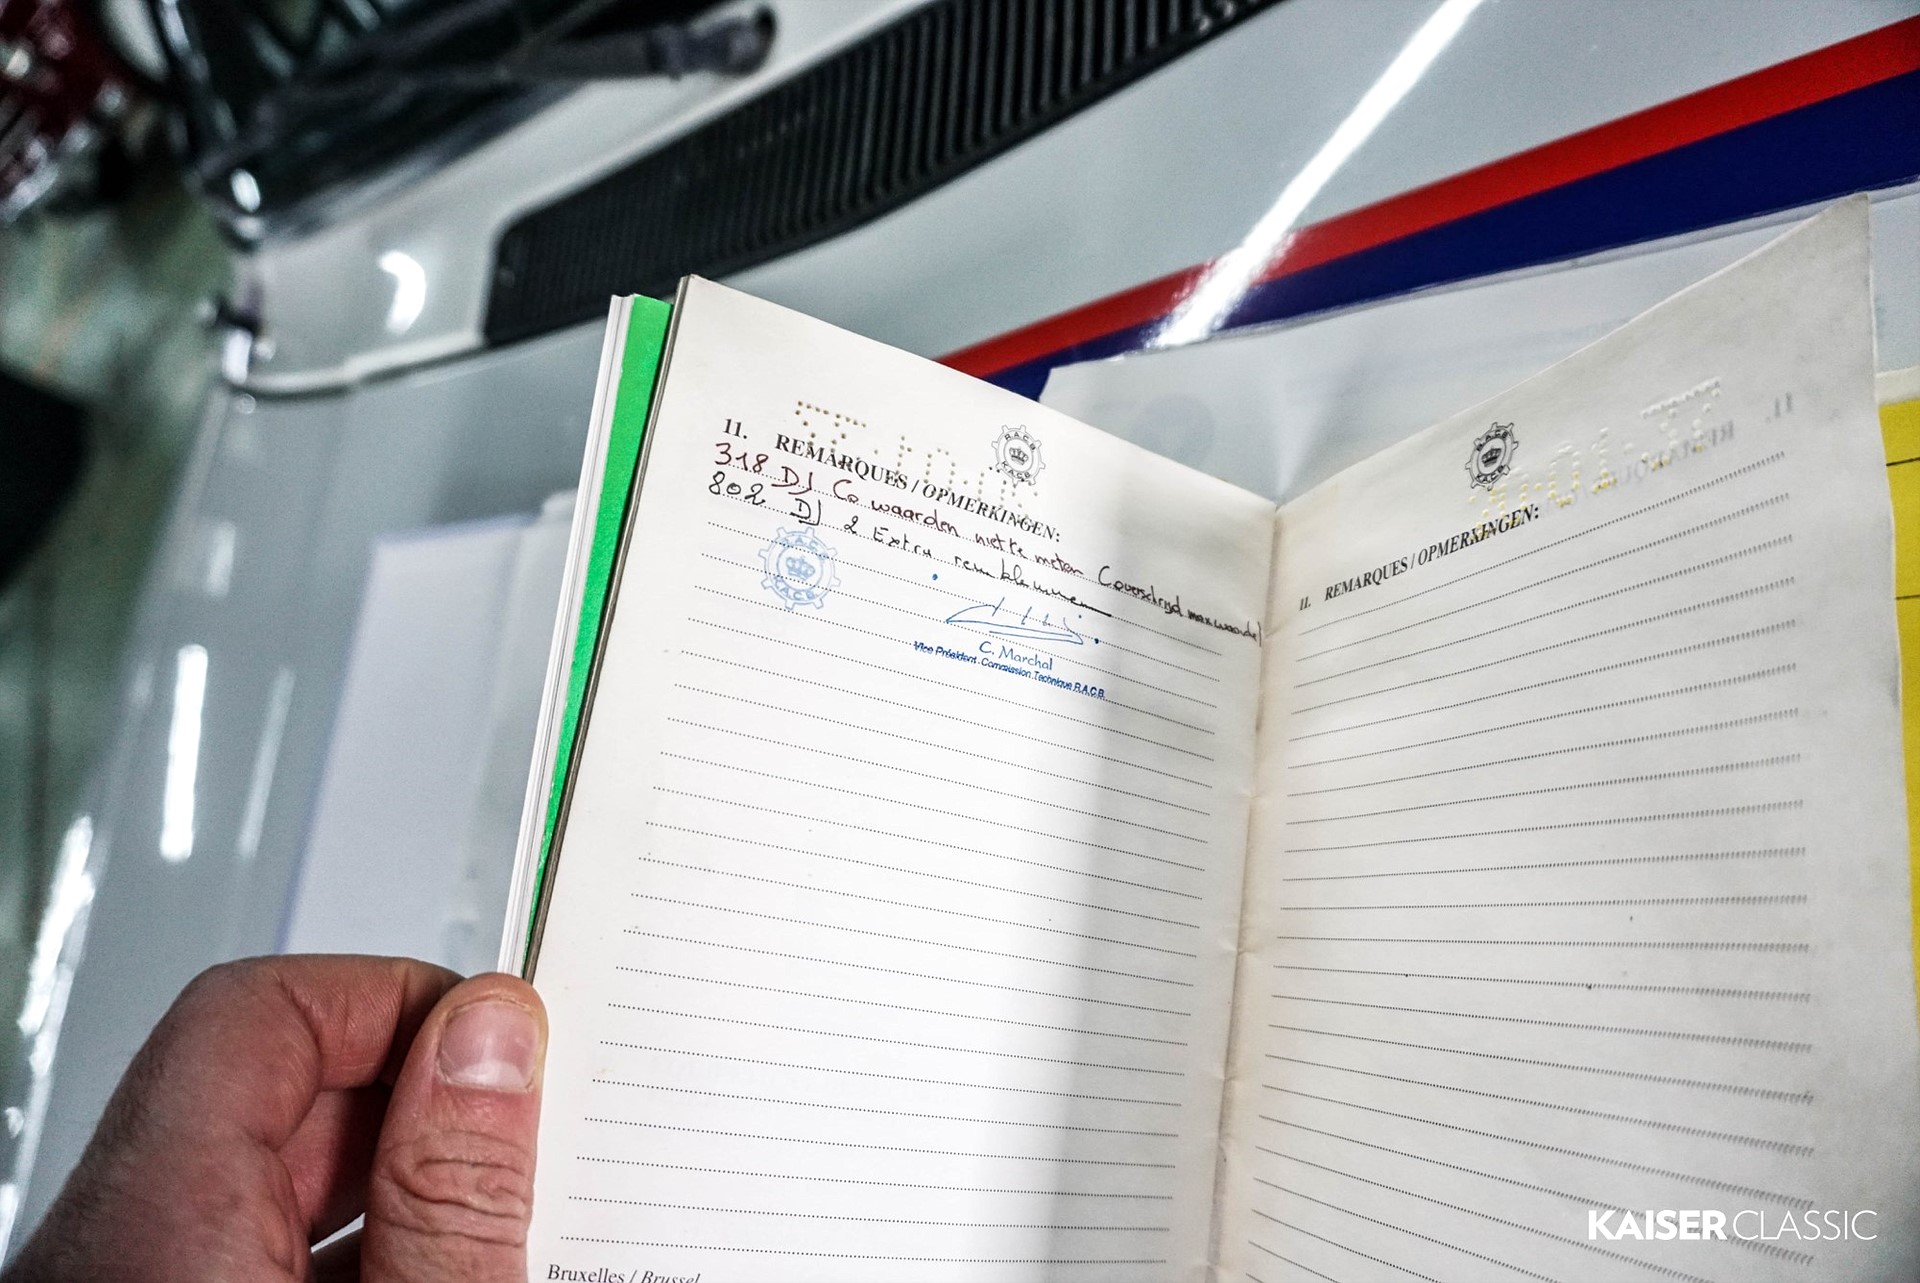 11. REMARQUES / OPMERKINGEN:
318 DJ Co waarden niet te meten (overschrijd max waarde)
802 DJ 2 Extra remklauwen
R.A.C.B.
K.A.C.B.
R.A.C.B.
K.A.C.B.
C. Marchal
Vice Président Commission Technique R.A.C.B.
Bruxelles / Brussel
R.A.C.B.
K.A.C.B.
11. REMARQUES / OPMERKINGEN:
KAISER CLASSIC